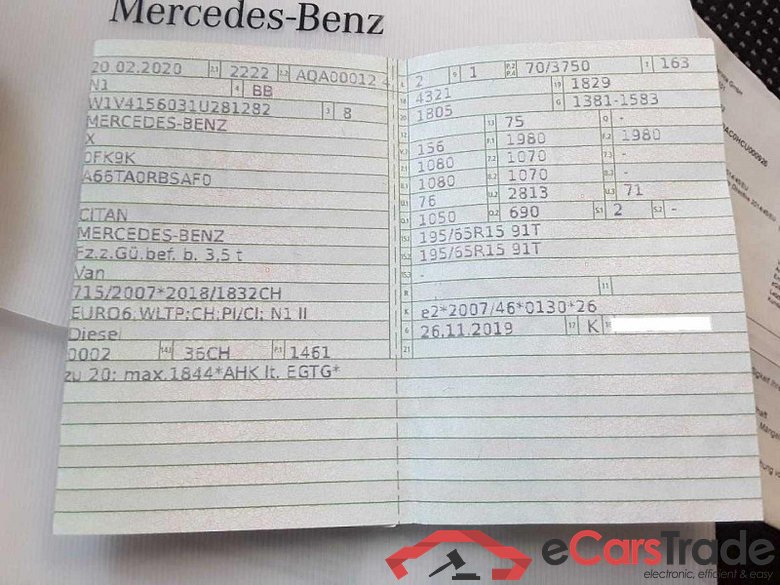 Mercedes-Benz
20.02.2020 2.1 2222 2.2 AQA00012 4
N1 4 BB
W1V4156031U281282 3 8
MERCEDES-BENZ
X
0FK9K
A66TA0RBSAF0
CITAN
MERCEDES-BENZ
Fz.z.Gü.bef. b. 3,5 t
Van
715/2007*2018/1832CH
EURO6;WLTP;CH;PI/CI; N1 II
Diesel
0002 14.1 36CH P.1 1461
zu 20: max.1844*AHK lt. EGTG*
L 2 9 1 P.2 P.4 70/3750 T 163
18 4321 19 1829
20 1805 G 1381-1583
12 - 13 75 Q -
V.7 156 F.1 1980 F.2 1980
7.1 1080 7.2 1070 7.3 -
8.1 1080 8.2 1070 8.3 -
U.1 76 U.2 2813 U.3 71
O.1 1050 O.2 690 S.1 2 S.2 -
15.1 195/65R15 91T
15.2 195/65R15 91T
15.3 -
R 11
K e2*2007/46*0130*26
6 26.11.2019 17 K 16
21
eCarsTrade
electronic, efficient & easy